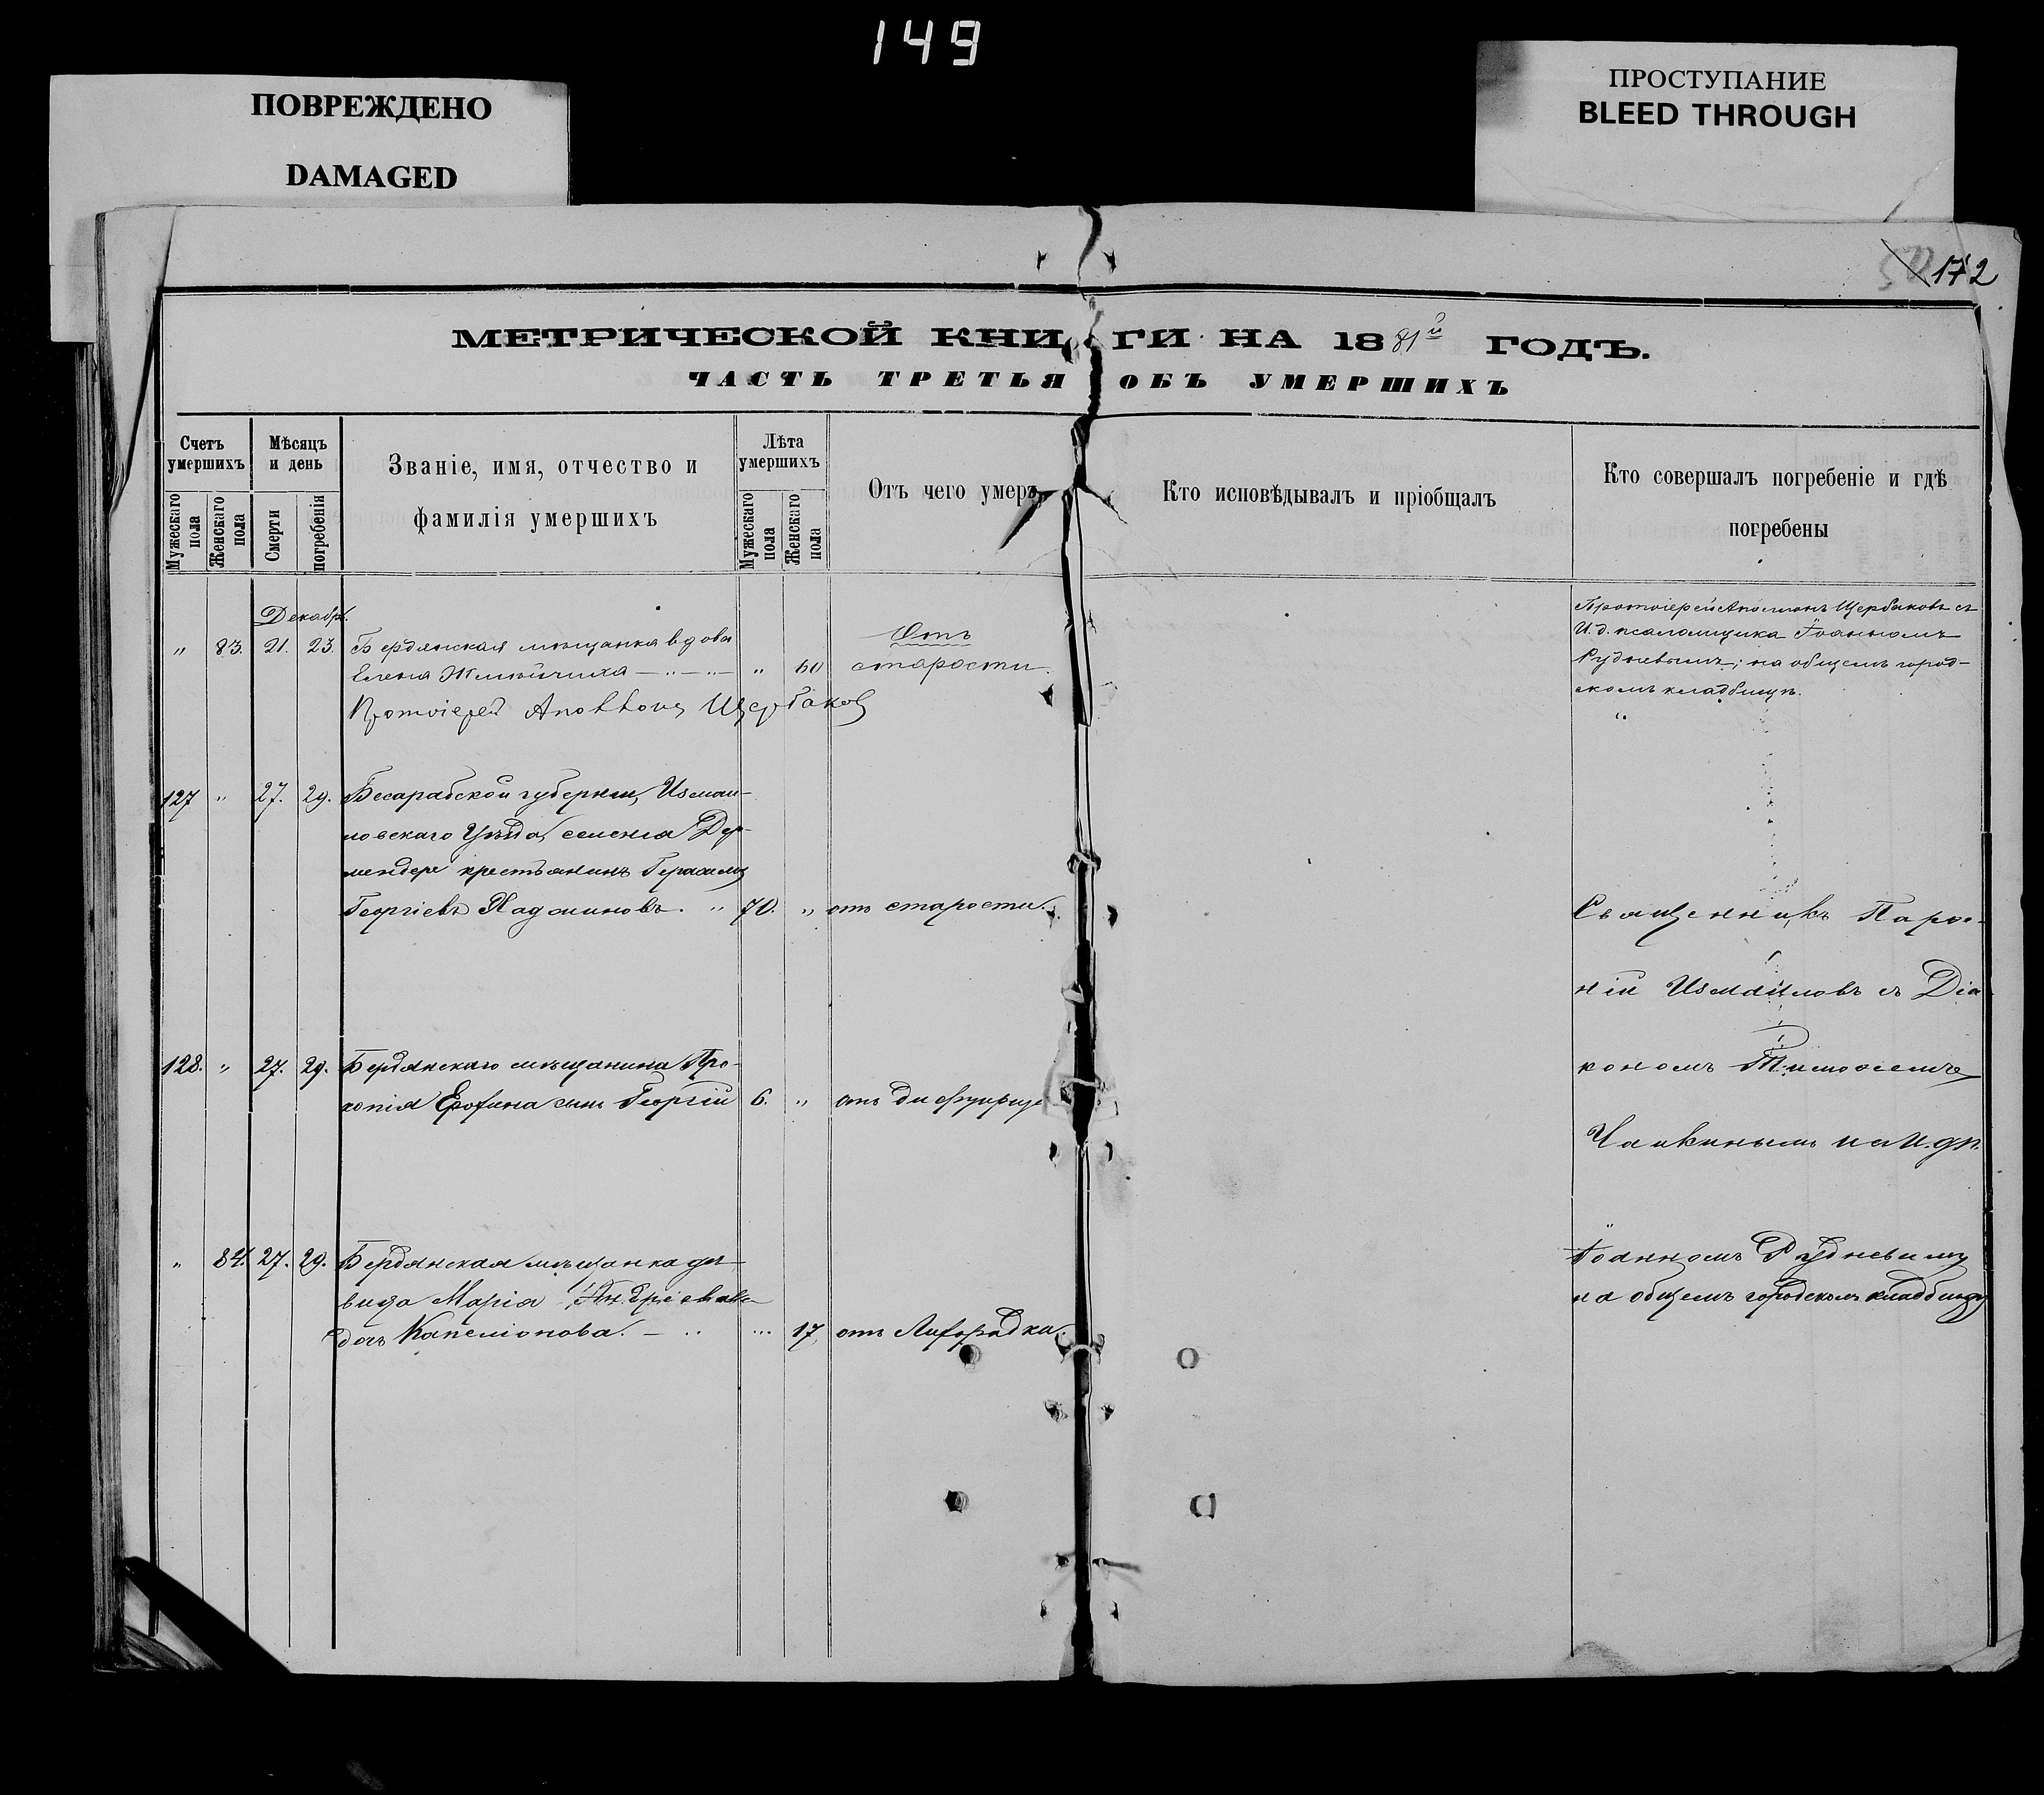 149
ПОВРЕЖДЕНО
DAMAGED
ПРОСТУПАНИЕ
BLEED THROUGH
172
МЕТРИЧЕСКОЙ КНИГИ НА 1881й ГОДЪ.
ЧАСТЬ ТРЕТЬЯ ОБЪ УМЕРШИХЪ
Счетъ умершихъ
Мужескаго пола
Женскаго пола
Мѣсяцъ и день
Смерти
погребенія
Званіе, имя, отчество и
фамилія умершихъ
Лѣта умершихъ
Мужескаго пола
Женскаго пола
Отъ чего умеръ
Кто исповѣдывалъ и пріобщалъ
Кто совершалъ погребеніе и гдѣ
погребены
Декабр.
„ 83. 21. 23. Бердянская мѣщанка вдова
Елена — „ — „ — „ 60
Отъ
старости.
Протоіерей Щербаковъ
Протоіерей Щербаковъ съ
И. д. псаломщика Іоанномъ
Рудневымъ; на общемъ город-
скомъ кладбищѣ.
127 „ 27. 29. Бесарабской губерніи, Измаи-
ловскаго Уѣзда, селенія Дер-
мендере крестьянинъ Герасимъ
Георгіевъ „ 70. „ отъ старости.
Священникъ
ній Измаиловъ съ Діа-
128. „ 27. 29. Бердянскаго мѣщанина Про-
копія сынъ Георгій 6. „ отъ
кономъ Тимоѳеемъ
Чайкинымъ и И. д. п.
„ 84. 27. 29. Бердянская мѣщанка дѣ-
вица Марія
дочь 17. отъ Лихорадки.
Іоанномъ Рудневымъ
на общемъ городскомъ кладбищѣ